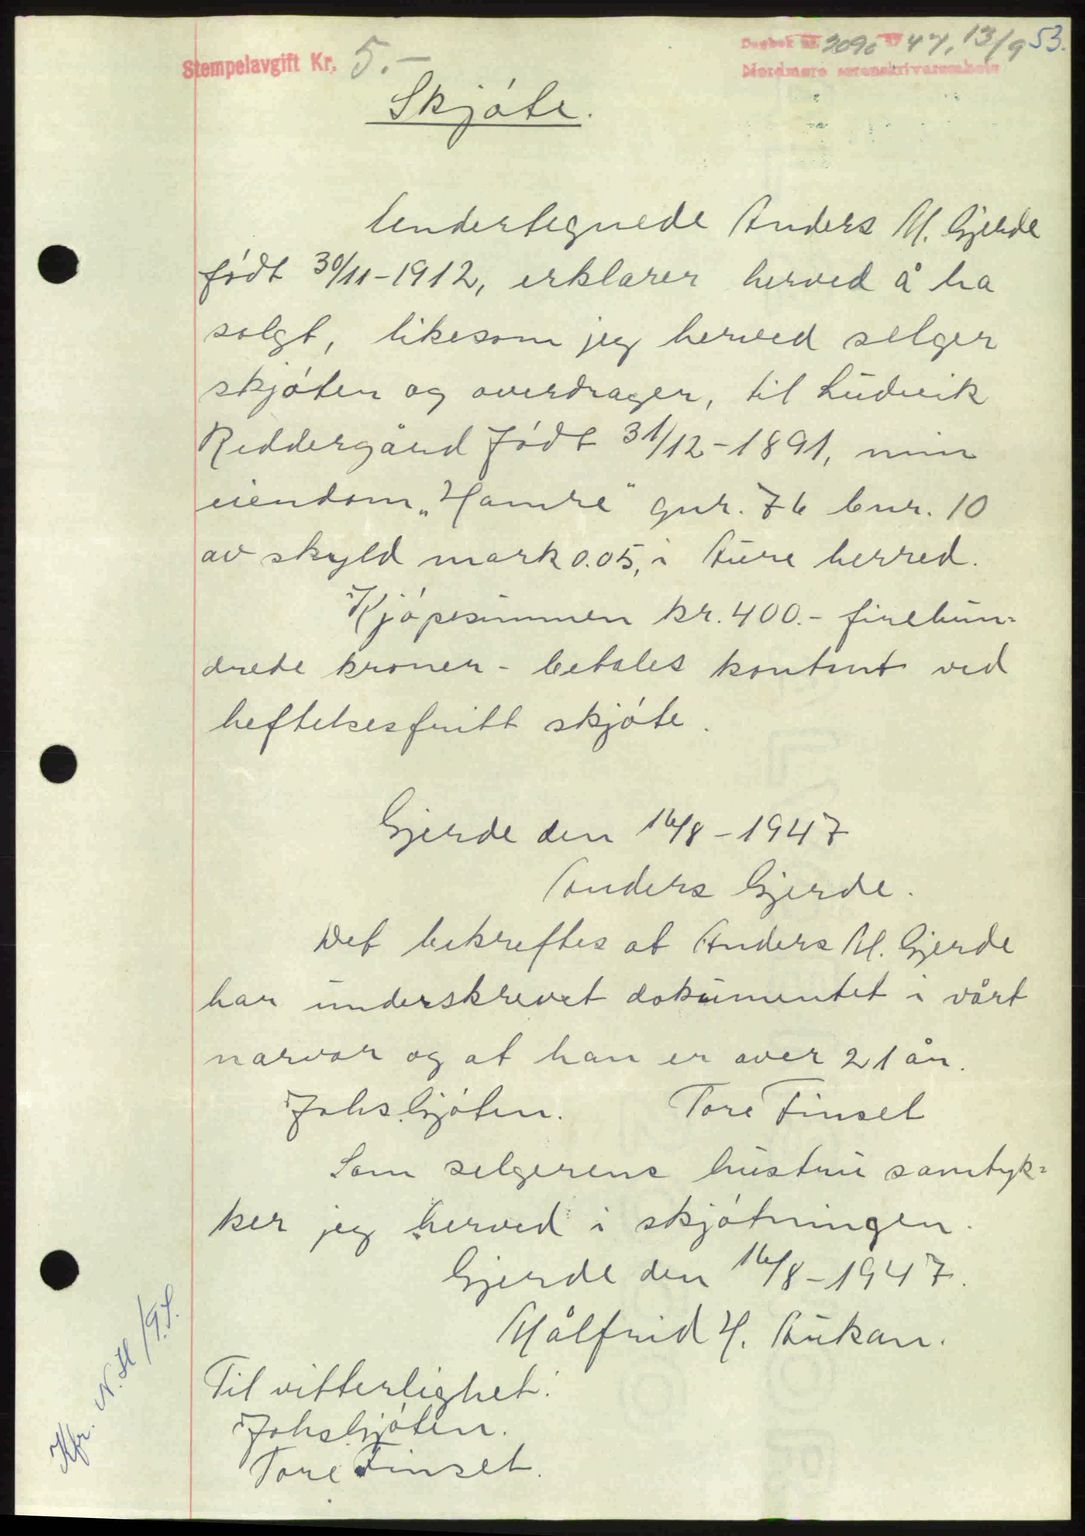 Stempelavgift Kr. 5.-
Dagbok nr. 2090 47, 13/9 53.
Nordmøre sorenskriverembete
Skjøte.
Undertegnede Anders M. Gjerde
født 30/11-1912, erklærer herved å ha
solgt, likesom jeg herved selger
skjøter og overdrager, til Ludvik
Reddergård født 31/12-1891, min
eiendom „Hamre" gnr. 76 bnr. 10
av skyld mark 0.05, i Aure herred.
Kjøpesummen kr. 400.- firehun-
drede kroner - betales kontant ved
heftelsesfritt skjøte.
Gjerde den 16/8-1947
Anders Gjerde.
Det bekreftes at Anders M. Gjerde
har underskrevet dokumentet i vårt
nærvær og at han er over 21 år.
Johs. Gjøten. Tore Finset
Som selgerens hustru samtyk-
ker jeg herved i skjøtningen.
Gjerde den 16/8-1947.
Målfrid H. Aukan.
Til vitterlighet:
Johs. Gjøten.
Tore Finset.
Kfr. N.H/94.